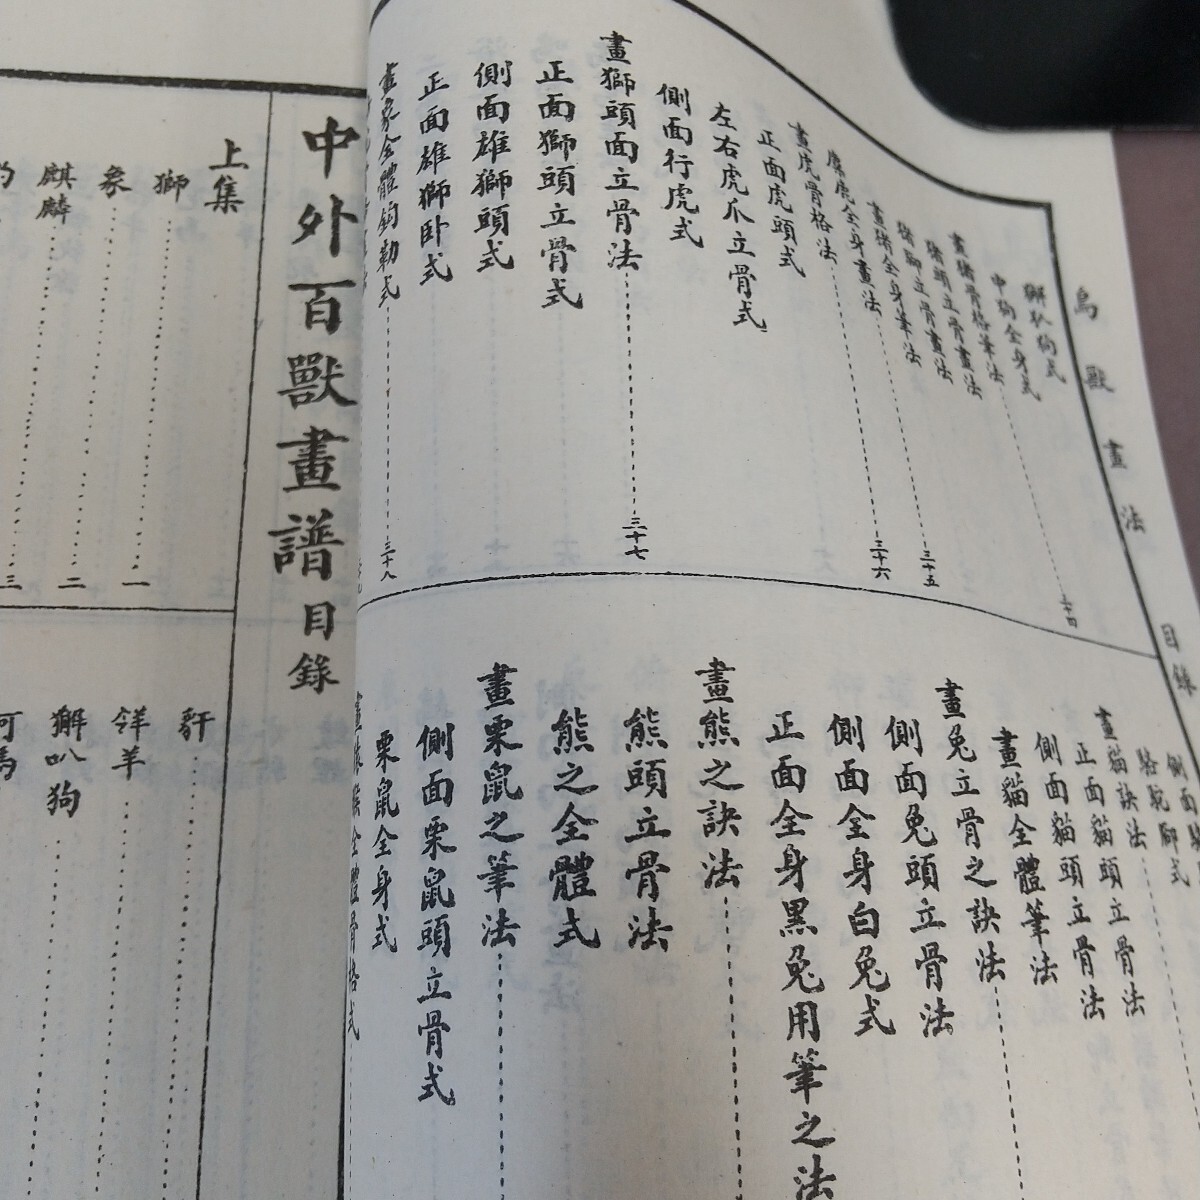 鳥獸畫法
目錄
獬叭狗式
中狗全身式
畫猪骨格筆法
猪頭立骨畫法
猪腳立骨畫法
畫猪全身筆法
三十五
虎全身畫法
三十六
畫虎骨格法
正面虎頭式
左右虎爪立骨式
側面行虎式
畫獅頭面立骨法
三十七
正面獅頭立骨式
側面雄獅頭式
正面雄獅卧式
畫象全體鈎勒式
三十八
側面
駱駝腳式
畫貓訣法
正面貓頭立骨法
側面貓頭立骨法
畫貓全體筆法
畫兔立骨之訣法
側面兔頭立骨法
側面全身白兔式
正面全身黑兔用筆之法
畫熊之訣法
熊頭立骨法
熊之全體式
畫栗鼠之筆法
側面栗鼠頭立骨式
栗鼠全身式
全體骨格式
中外百獸畫譜目錄
上集
獅
一
象
二
麒麟
三
豻
羚羊
獬叭狗
河馬